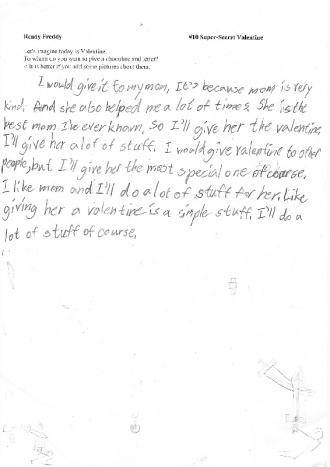 Ready Freddy #10 Super-Secret Valentine
Let's imagine today is Valentine.
To whom do you want to give a chocolate and letter?
It is better if you add some pictures about them.
I would give it to my mom, It's because mom is very
kind. And she also helped me a lot of times. She is the
best mom I've ever known, So I'll give her the valentine,
I'll give her a lot of stuff. I would give valentine to other
people, but I'll give her the most special one of course,
I like mom and I'll do a lot of stuff for her. Like
giving her a valentine is a simple stuff. I'll do a
lot of stuff of course.